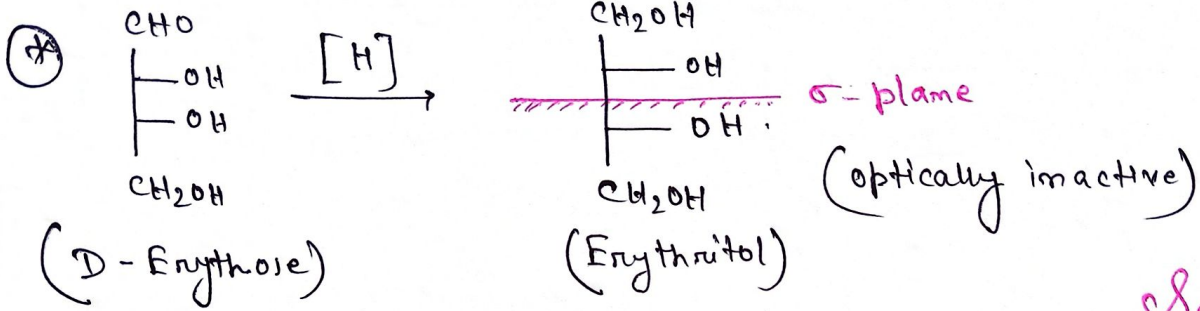 *
CHO
OH
OH
CH2OH
(D-Erythose)
[H]
CH2OH
OH
OH.
CH2OH
(Erythritol)
σ-plane
(optically inactive)